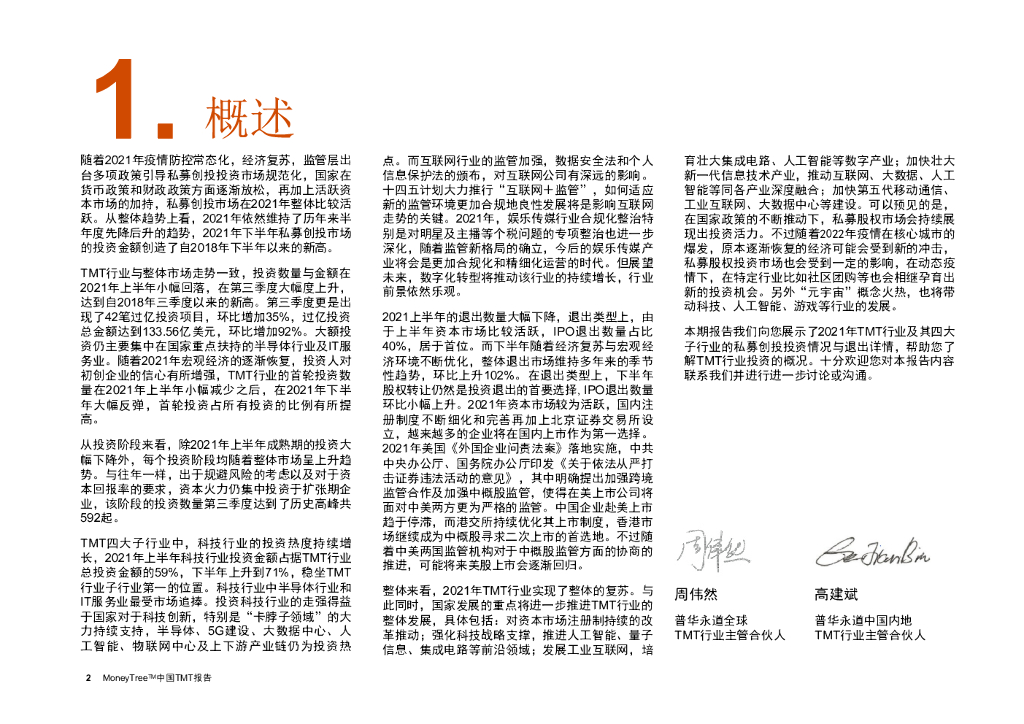 1. 概述
随着2021年疫情防控常态化，经济复苏，监管层出
台多项政策引导私募创投投资市场规范化，国家在
货币政策和财政政策方面逐渐放松，再加上活跃资
本市场的加持，私募创投市场在2021年整体比较活
跃。从整体趋势上看，2021年依然维持了历年来半
年度先降后升的趋势，2021年下半年私募创投市场
的投资金额创造了自2018年下半年以来的新高。
TMT行业与整体市场走势一致，投资数量与金额在
2021年上半年小幅回落，在第三季度大幅度上升，
达到自2018年三季度以来的新高。第三季度更是出
现了42笔过亿投资项目，环比增加35%，过亿投资
总金额达到133.56亿美元，环比增加92%。大额投
资仍主要集中在国家重点扶持的半导体行业及IT服
务业。随着2021年宏观经济的逐渐恢复，投资人对
初创企业的信心有所增强，TMT行业的首轮投资数
量在2021年上半年小幅减少之后，在2021年下半
年大幅反弹，首轮投资占所有投资的比例有所提
高。
从投资阶段来看，除2021年上半年成熟期的投资大
幅下降外，每个投资阶段均随着整体市场呈上升趋
势。与往年一样，出于规避风险的考虑以及对于资
本回报率的要求，资本火力仍集中投资于扩张期企
业，该阶段的投资数量第三季度达到了历史高峰共
592起。
TMT四大子行业中，科技行业的投资热度持续增
长，2021年上半年科技行业投资金额占据TMT行业
总投资金额的59%，下半年上升到71%，稳坐TMT
行业子行业第一的位置。科技行业中半导体行业和
IT服务业最受市场追捧。投资科技行业的走强得益
于国家对于科技创新，特别是“卡脖子领域”的大
力持续支持，半导体、5G建设、大数据中心、人
工智能、物联网中心及上下游产业链仍为投资热
点。而互联网行业的监管加强，数据安全法和个人
信息保护法的颁布，对互联网公司有深远的影响。
十四五计划大力推行“互联网＋监管”，如何适应
新的监管环境更加合规地良性发展将是影响互联网
走势的关键。2021年，娱乐传媒行业合规化整治特
别是对明星及主播等个税问题的专项整治也进一步
深化，随着监管新格局的确立，今后的娱乐传媒产
业将会是更加合规化和精细化运营的时代。但展望
未来，数字化转型将推动该行业的持续增长，行业
前景依然乐观。
2021上半年的退出数量大幅下降，退出类型上，由
于上半年资本市场比较活跃，IPO退出数量占比
40%，居于首位。而下半年随着经济复苏与宏观经
济环境不断优化，整体退出市场维持多年来的季节
性趋势，环比上升102%。在退出类型上，下半年
股权转让仍然是投资退出的首要选择, IPO退出数量
环比小幅上升。2021年资本市场较为活跃，国内注
册制度不断细化和完善再加上北京证券交易所设
立，越来越多的企业将在国内上市作为第一选择。
2021年美国《外国企业问责法案》落地实施，中共
中央办公厅、国务院办公厅印发《关于依法从严打
击证券违法活动的意见》，其中明确提出加强跨境
监管合作及加强中概股监管，使得在美上市公司将
面对中美两方更为严格的监管。中国企业赴美上市
趋于停滞，而港交所持续优化其上市制度，香港市
场继续成为中概股寻求二次上市的首选地。不过随
着中美两国监管机构对于中概股监管方面的协商的
推进，可能将来美股上市会逐渐回归。
整体来看，2021年TMT行业实现了整体的复苏。与
此同时，国家发展的重点将进一步推进TMT行业的
整体发展，具体包括：对资本市场注册制持续的改
革推动；强化科技战略支撑，推进人工智能、量子
信息、集成电路等前沿领域；发展工业互联网，培
育壮大集成电路、人工智能等数字产业；加快壮大
新一代信息技术产业，推动互联网、大数据、人工
智能等同各产业深度融合；加快第五代移动通信、
工业互联网、大数据中心等建设。可以预见的是，
在国家政策的不断推动下，私募股权市场会持续展
现出投资活力。不过随着2022年疫情在核心城市的
爆发，原本逐渐恢复的经济可能会受到新的冲击，
私募股权投资市场也会受到一定的影响，在动态疫
情下，在特定行业比如社区团购等也会相继孕育出
新的投资机会。另外“元宇宙”概念火热，也将带
动科技、人工智能、游戏等行业的发展。
本期报告我们向您展示了2021年TMT行业及其四大
子行业的私募创投投资情况与退出详情，帮助您了
解TMT行业投资的概况。十分欢迎您对本报告内容
联系我们并进行进一步讨论或沟通。
周伟然
Gao Jian Bin
周伟然
普华永道全球
TMT行业主管合伙人
高建斌
普华永道中国内地
TMT行业主管合伙人
2 MoneyTree™中国TMT报告